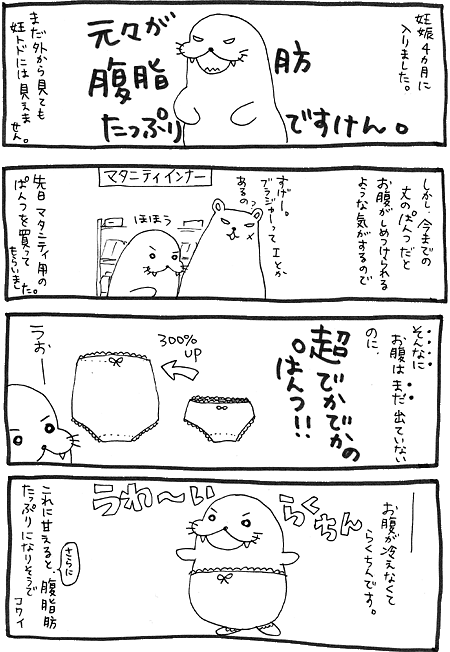 妊娠4ヵ月に
入りました。
元々が
腹脂肪
たっぷりですけん。
まだ外から見ても
妊トドには見えま
せん。
しかし、今までの
丈のぱんつだと
お腹がしめつけられる
ような気がするので
マタニティインナー
すげー。
ブラジャーってエとか
あるのっ
ほほう
先日マタニティ用の
ぱんつを買って
もらいました。
そんなに
お腹はまだ出ていない
のに、
超でかでかの
ぱんつ!!
300%
UP
うぉー
お腹が冷えなくて
らくちんです。
らくちん
うわ〜い
これに甘えると、さらに腹脂肪
たっぷりになりそうで
コワイ